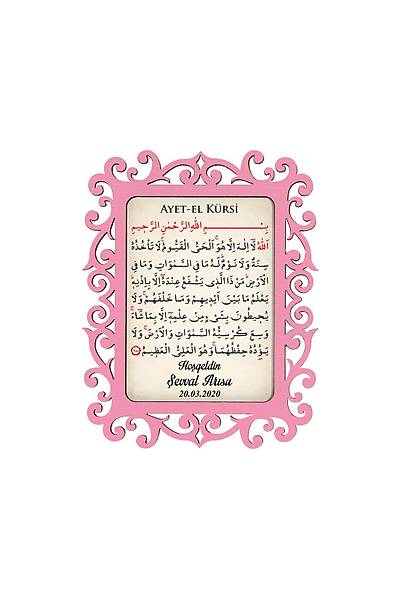 AYET-EL KÜRSİ
بِسْــــمِ اللّٰهِ الرَّحْمٰنِ الرَّحٖيمِ
اَللّٰهُ لَٓا اِلٰهَ اِلَّا هُوَۚ اَلْحَيُّ الْقَيُّومُۚ لَا تَأْخُذُهُ
سِنَةٌ وَلَا نَوْمٌۜ لَهُ مَا فِي السَّمٰوَاتِ وَمَا فِي
الْاَرْضِۜ مَنْ ذَا الَّذٖي يَشْفَعُ عِنْدَهُٓ اِلَّا بِاِذْنِهٖۜ
يَعْلَمُ مَا بَيْنَ اَيْدٖيهِمْ وَمَا خَلْفَهُمْۚ وَلَا
يُحٖيطُونَ بِشَيْءٍ مِنْ عِلْمِهٖٓ اِلَّا بِمَا شَٓاءَۚ
وَسِعَ كُرْسِيُّهُ السَّمٰوَاتِ وَالْاَرْضَۚ وَلَا
يَؤُ۫دُهُ حِفْظُهُمَاۚ وَهُوَ الْعَلِيُّ الْعَظٖيمُ
Hoşgeldin
Şevval Arısu
20.03.2020